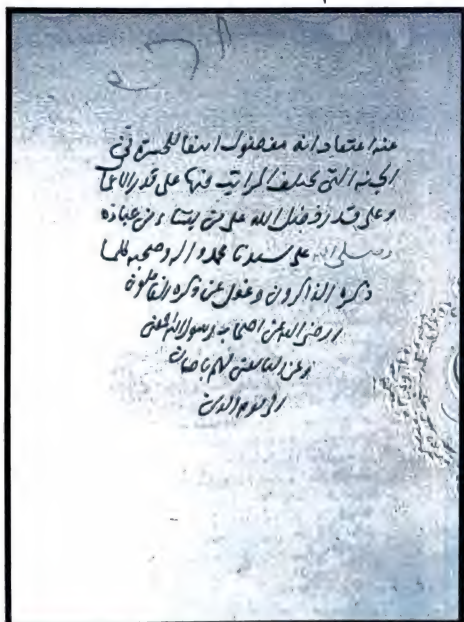 عند اعتقاد انه مفضول ايضا للحسن في
الجنة التي تختلف المراتب فيها على قدر الاعما
وعلى قدر فضل الله على من يشاء من عباده
وصلى الله على سيدنا محمد واله وصحبه كلما
ذكره الذاكرون وغفل عن ذكره الغافلون
ورضى الله عن اصحاب رسول الله اجمعين
وعن التابعين لهم باحسان
الى يوم الدين